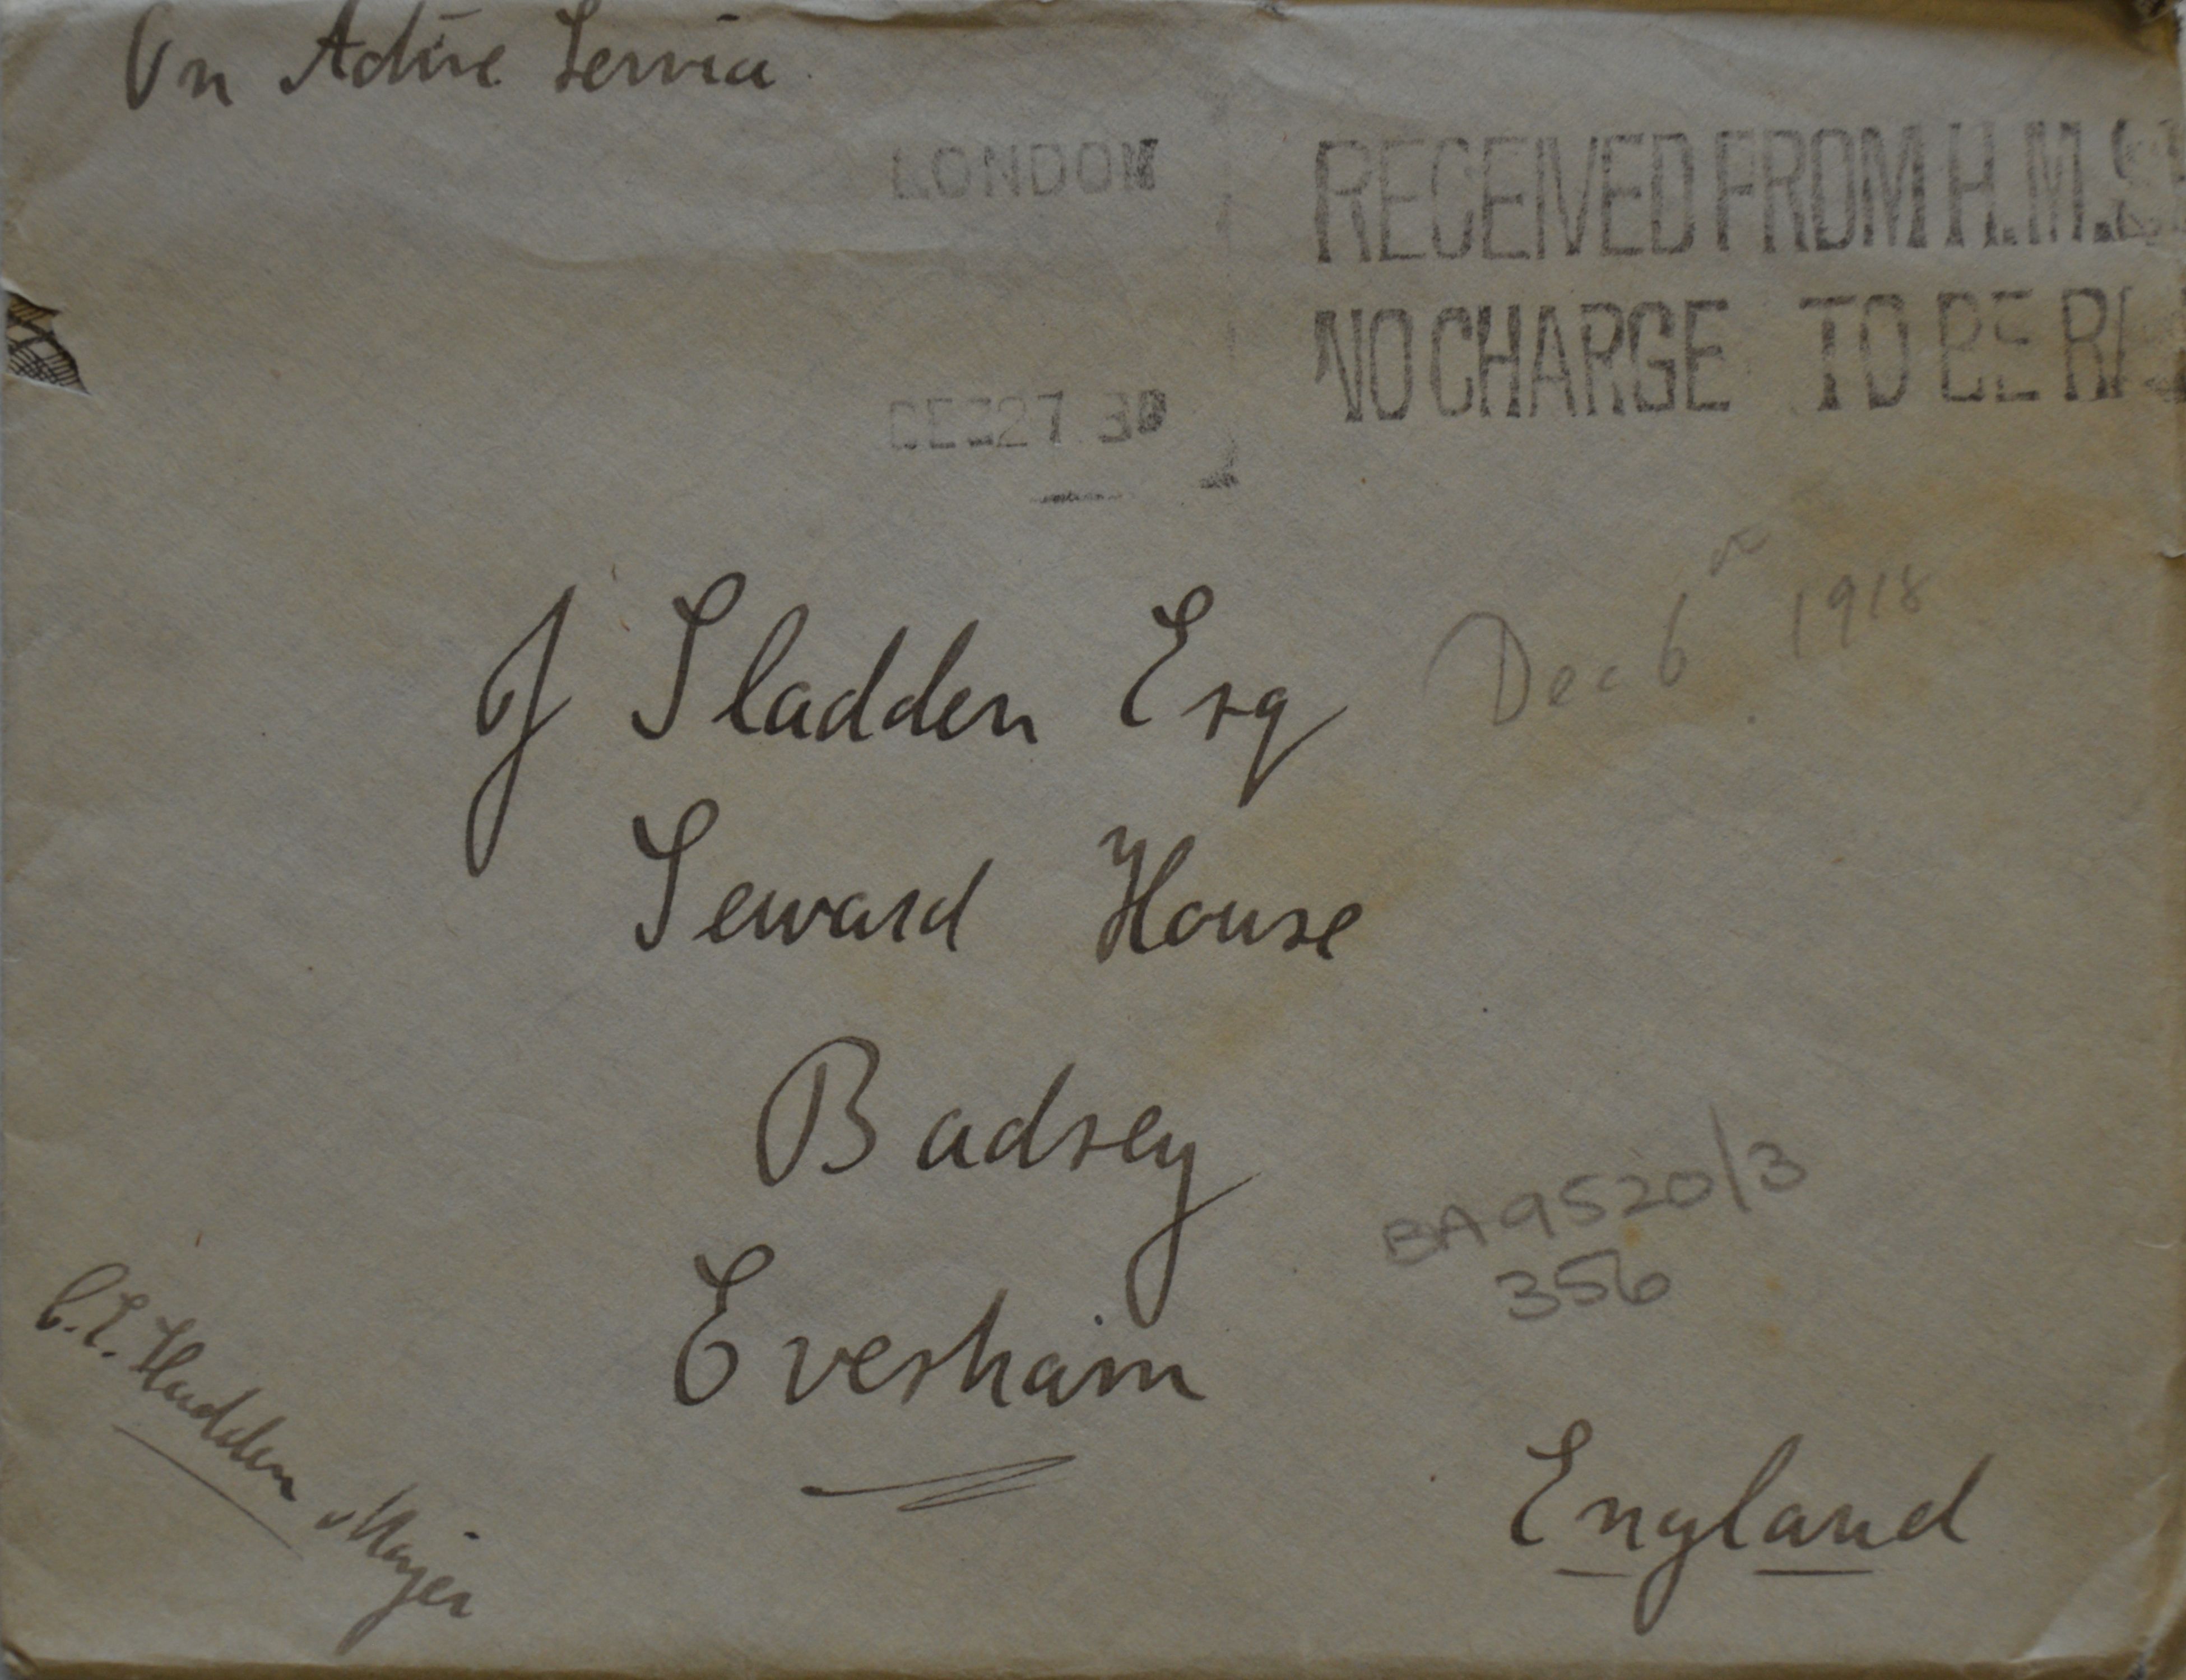 On Active Service
LONDON
RECEIVED FROM H.M.S
NO CHARGE TO BE RA
DEC 27
J Sladden Esq
Dec 6th 1918
Seward House
Badsey
BA9520/3
356
Evesham
C.E. Sladden Major
England